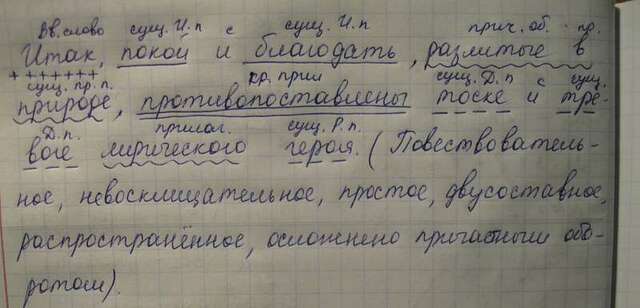 Вв. слово сущ. И. п с сущ. И. п прич. об. пр.
Итак, покой и благодать, разлитые в
сущ. пр. п. кр. прич сущ. Д. п с сущ.
природе, противопоставлены тоске и тре-
Д. п. прилаг. сущ. Р. п.
воге лирического героя. (Повествователь-
ное, невосклицательное, простое, двусоставное,
распространённое, осложнено причастным обо-
ротом).